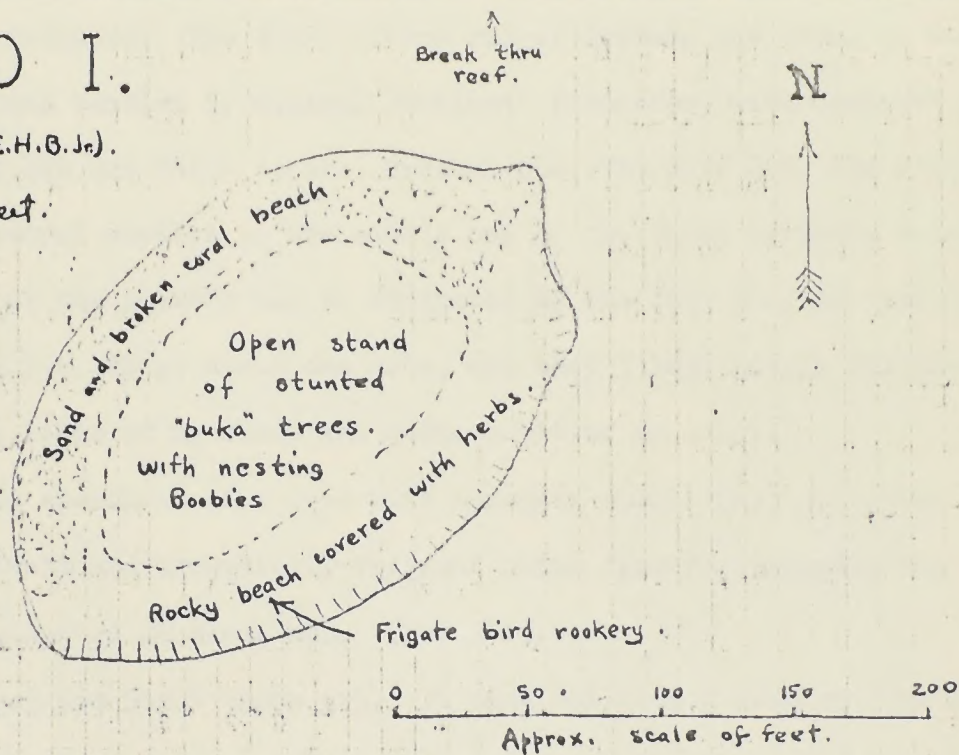 O I.
E.H.B.Jr.).
eet.
Break thru
reef.
N
Sand and broken coral beach
Open stand
of stunted
"buka" trees.
with nesting
Boobies
Rocky beach covered with herbs.
Frigate bird rookery.
0 50 100 150 200
Approx. scale of feet.